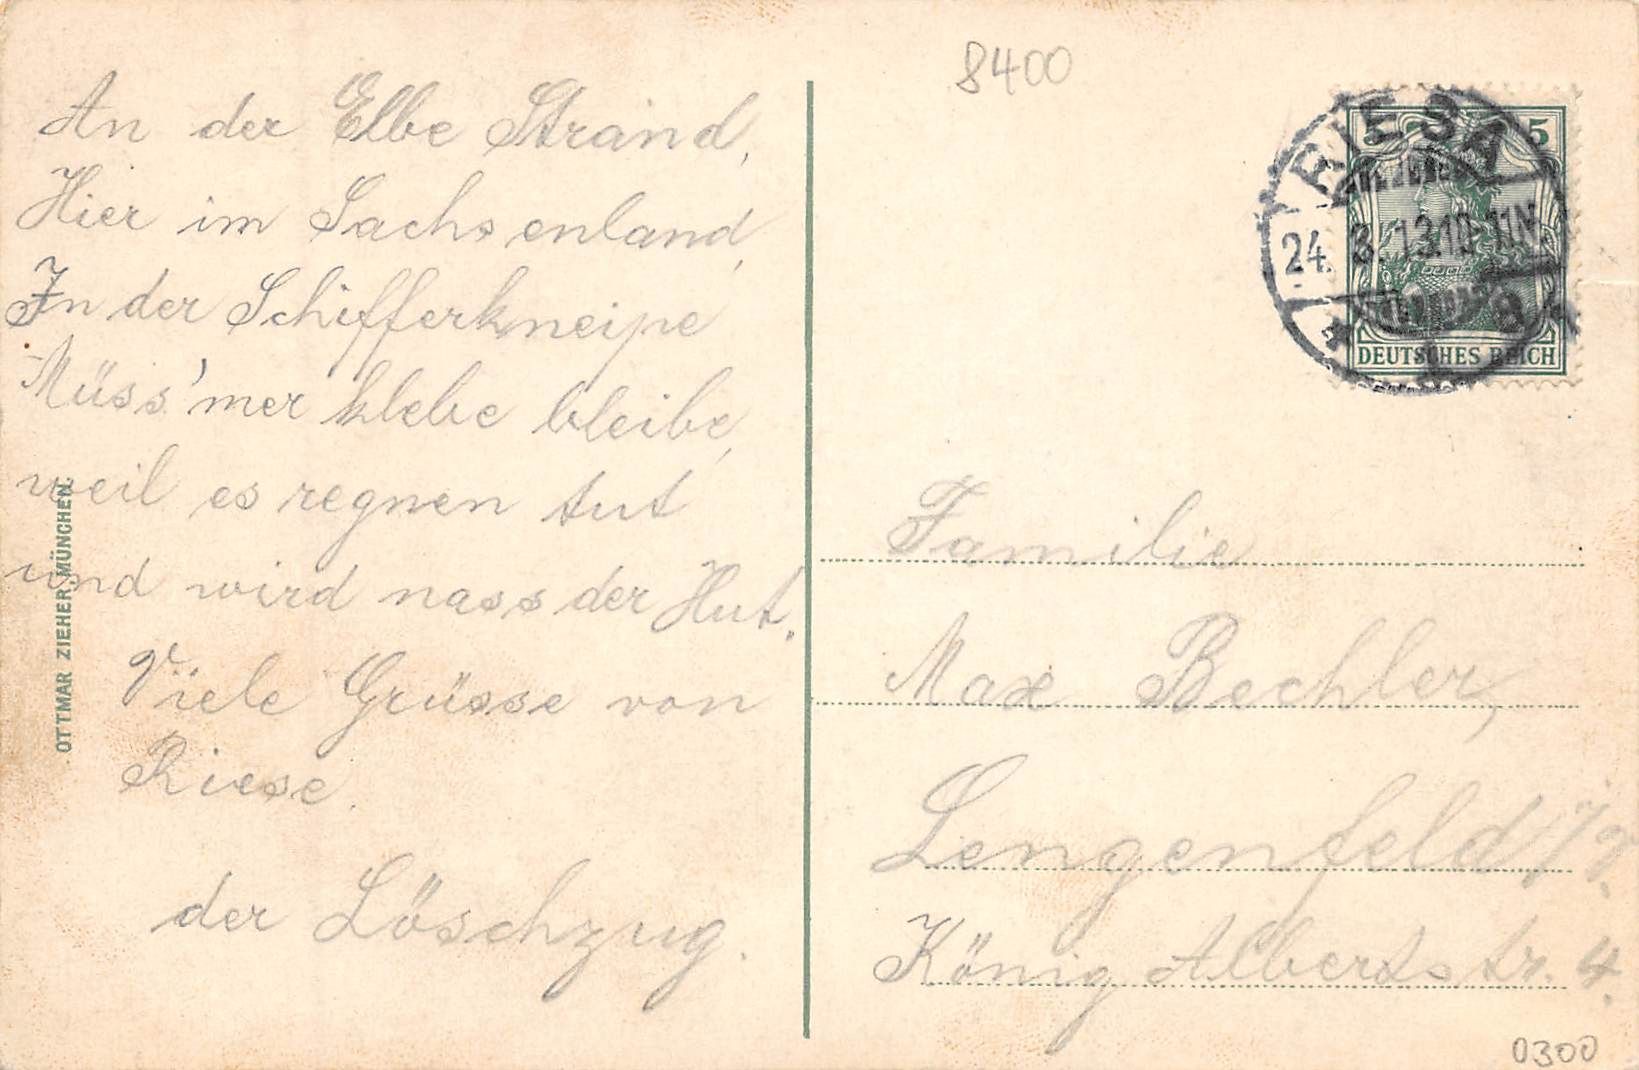 An der Elbe Strand,
Hier im Sachsenland,
In der Schifferkneipe
Müss'mer klebe bleibe,
weil es regnen tut
und wird nass der Hut.
Viele Grüsse von
Riese.
der Löschzug.
OTTMAR ZIEHER, MÜNCHEN.
8400
RIESA
24. 3. 13. 10-11N
5 5
DEUTSCHES REICH
Familie
Max Bechler,
Lengenfeld i/V.
König Albertstr. 4.
0300